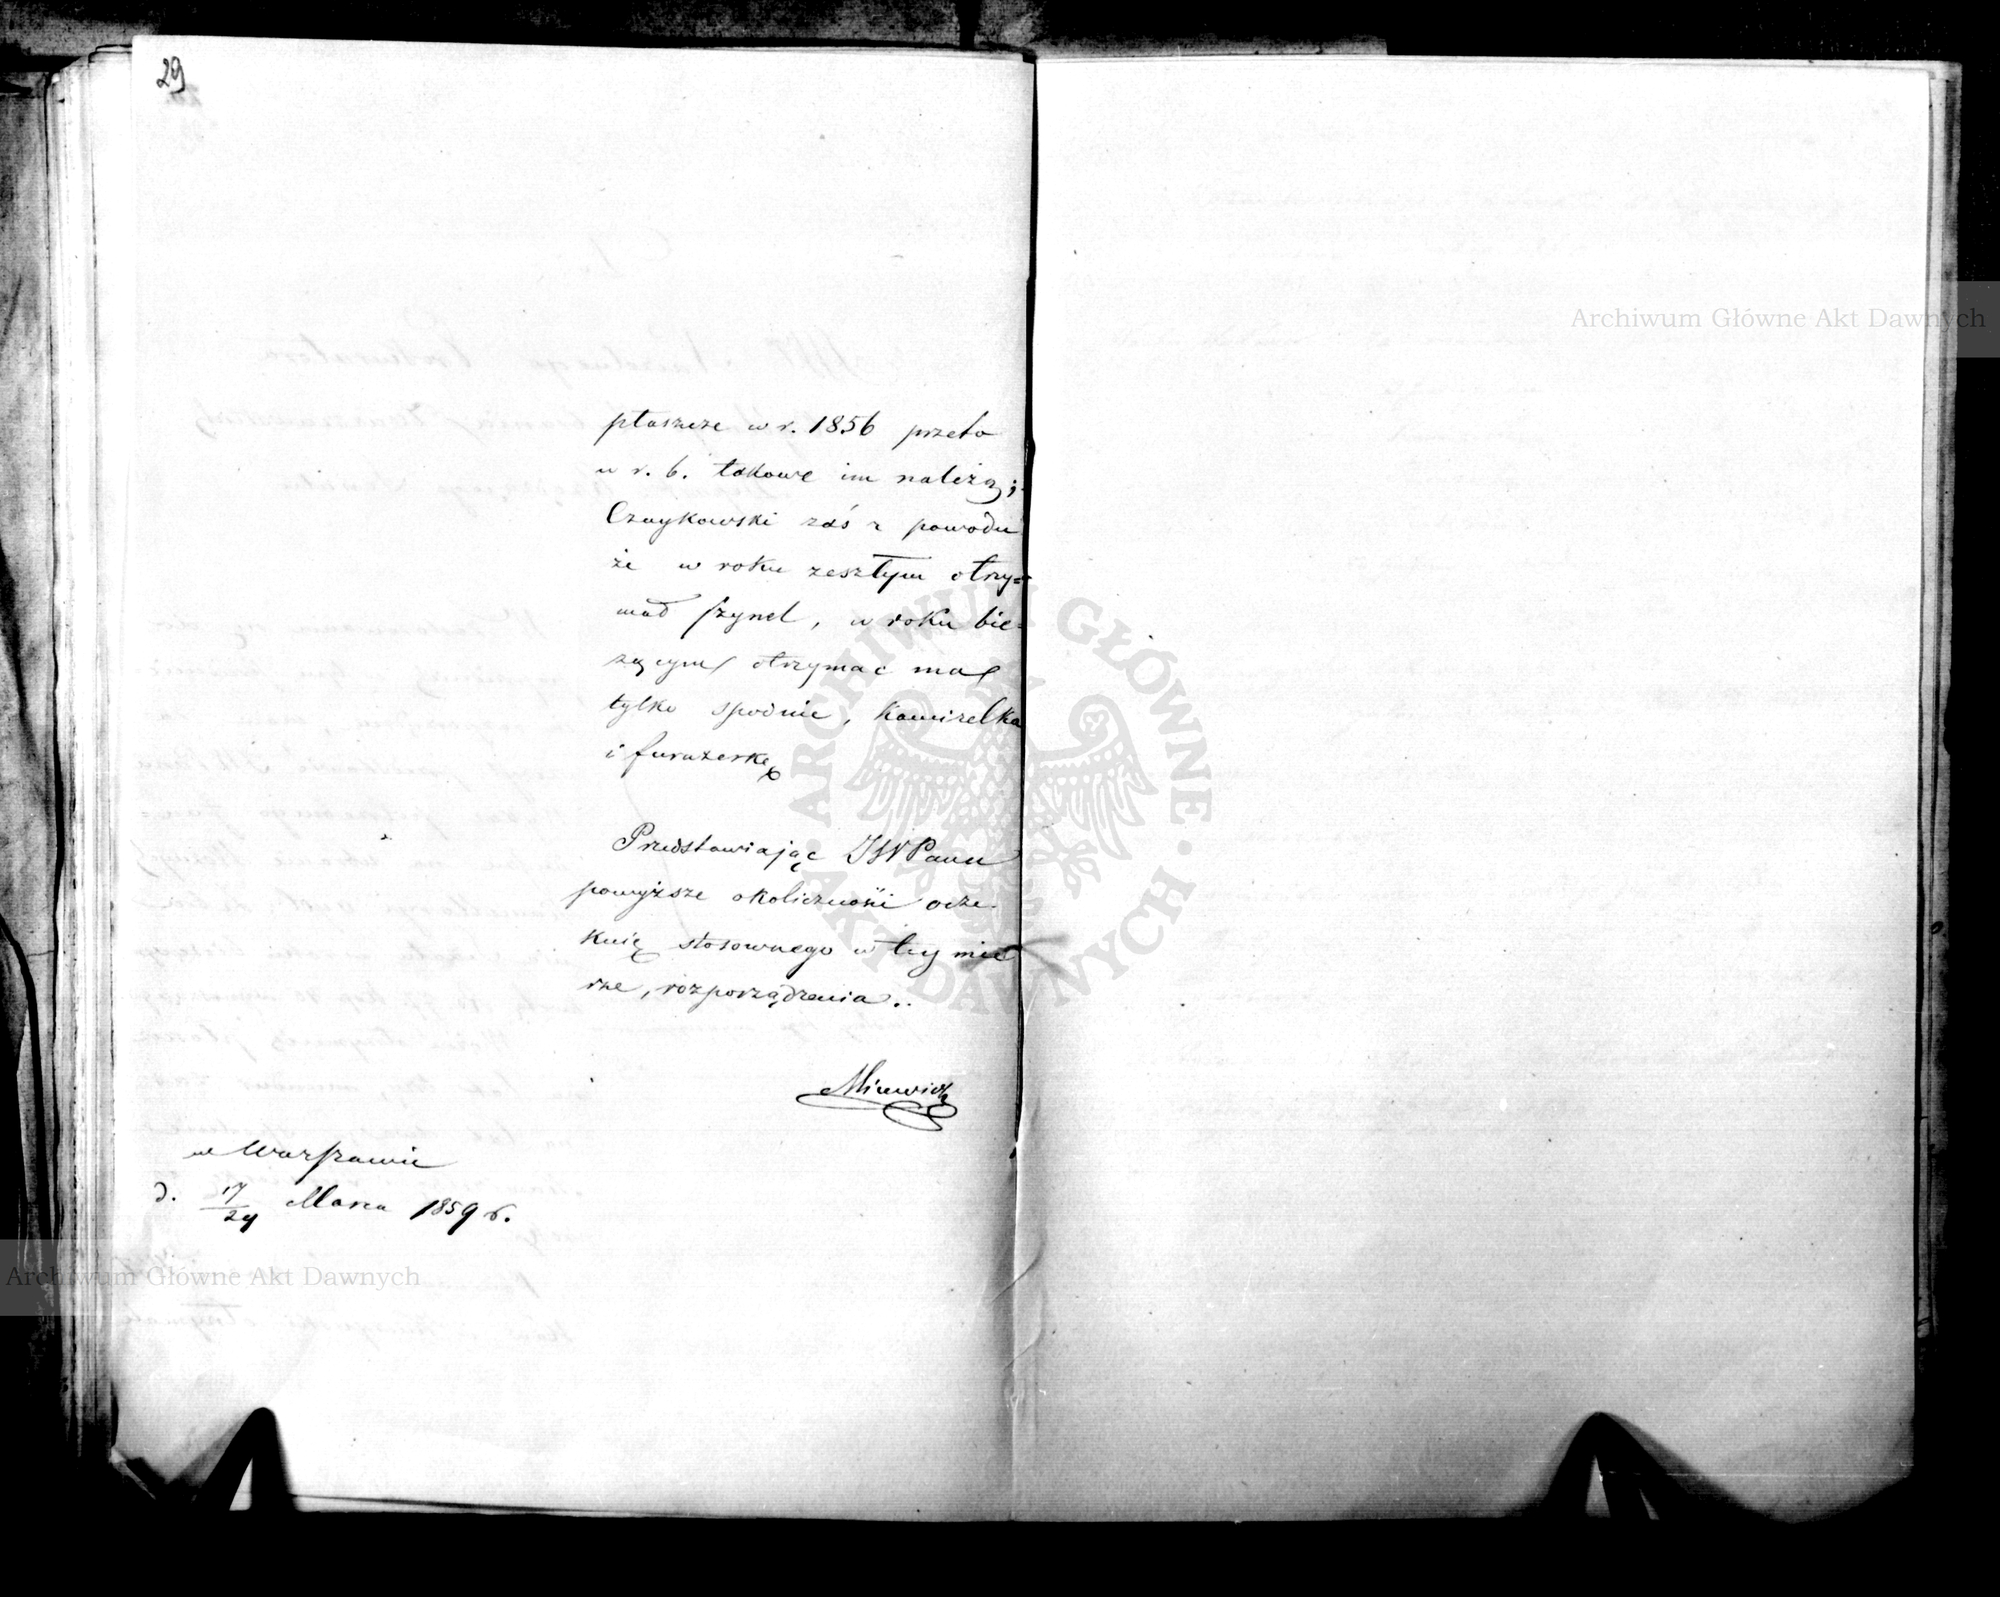 29
płaszcze w r. 1856 przeto
w r. b. takowe im należą;
Czaykowski zaś z powodu
że w roku zeszłym otrzy=
mał szynel, w roku bie=
żącym otrzymać ma
tylko spodnie, kamizelkę
i furażerkę
Przedstawiając JW Panu
powyższe okoliczności ocze-
kuię stosownego w tey mie
rze, rozporządzenia.
w Warszawie
d. 17/29 Marca 1859 r.
Archiwum Główne Akt Dawnych
Archiwum Główne Akt Dawnych
ARCHIWUM GŁÓWNE AKT DAWNYCH